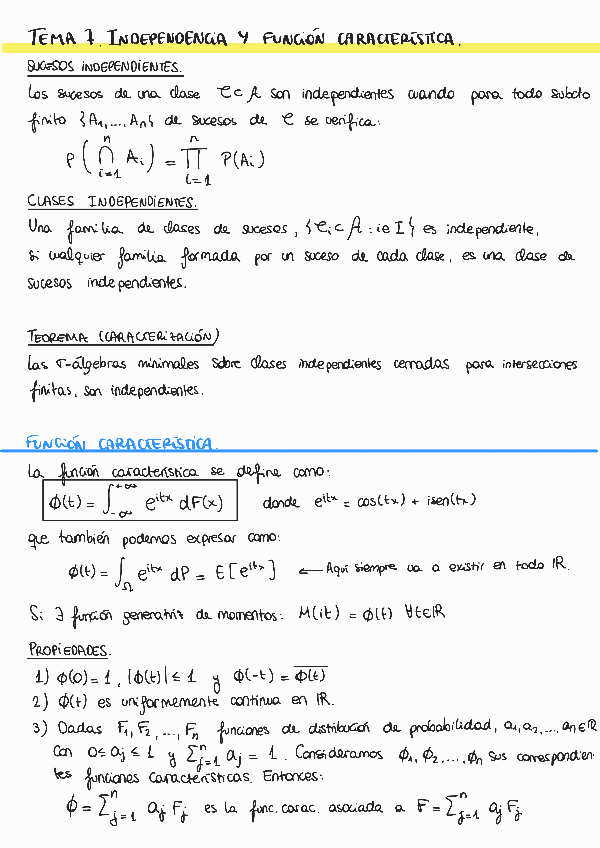 TEMA 7. INDEPENDENCIA Y FUNCIÓN CARACTERÍSTICA.
SUCESOS INDEPENDIENTES.
Los sucesos de una clase 𝒞 ⊂ 𝒜 son independientes cuando para todo subcto
finito {A₁,...,Aₙ} de sucesos de 𝒞 se verifica:
P(⋂ᵢ₌₁ⁿ Aᵢ) = ∏ᵢ₌₁ⁿ P(Aᵢ)
CLASES INDEPENDIENTES.
Una familia de clases de sucesos, {𝒞ᵢ ⊂ 𝒜 : i ∈ I} es independiente,
si cualquier familia formada por un suceso de cada clase, es una clase de
sucesos independientes.
TEOREMA (CARACTERIZACIÓN)
Las σ-álgebras minimales sobre clases independientes cerradas para intersecciones
finitas, son independientes.
FUNCIÓN CARACTERÍSTICA.
La función característica se define como:
ϕ(t) = ∫₋∞⁺∞ e^{itx} dF(x) donde e^{itx} = cos(tx) + isen(tx)
que también podemos expresar como:
ϕ(t) = ∫_Ω e^{itx} dP = E[e^{itx}] ← Aquí siempre va a existir en todo ℝ.
Si ∃ función generatriz de momentos: M(it) = ϕ(t) ∀t∈ℝ
PROPIEDADES.
1) ϕ(0) = 1, |ϕ(t)| ≤ 1 y ϕ(-t) = \overline{ϕ(t)}
2) ϕ(t) es uniformemente continua en ℝ.
3) Dadas F₁, F₂, ..., Fₙ funciones de distribución de probabilidad, a₁, a₂, ..., aₙ ∈ ℝ
con 0 ≤ aⱼ ≤ 1 y ∑ⱼ₌₁ⁿ aⱼ = 1. Consideramos ϕ₁, ϕ₂, ..., ϕₙ sus correspondien-
tes funciones características. Entonces:
ϕ = ∑ⱼ₌₁ⁿ aⱼ Fⱼ es la func. carac. asociada a F = ∑ⱼ₌₁ⁿ aⱼ Fⱼ